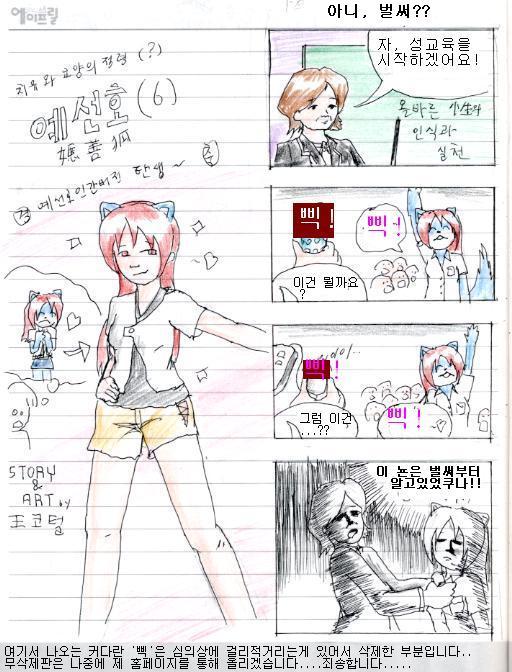 에이프릴
치유와 요양의 전령 (?)
예선호 (6)
穗善狐
경 예선호인간버전 탄생~ 축
STORY
&
ART by
王코털
아니, 벌써??
자, 성교육을
시작하겠어요!
올바른 성의
인식과
실천
삑!
삑!
이건 뭘까요
?
삑!
그럼 이건
...??
삑!
이 논은 벌써부터
알고있었쿠나!!
여기서 나오는 커다란 '삑'은 심의상에 걸리적거리는게 있어서 삭제한 부분입니다..
무삭제판은 나중에 제 홈페이지를 통해 올리겠습니다....죄송합니다.....